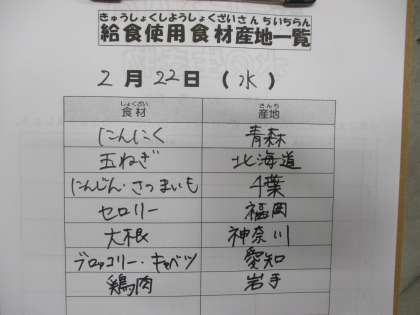 きゅうしょくしようしょくざいさんちいちらん
給食使用食材産地一覧
2月22日(水)
しょくざい さんち
食材 産地
にんにく 青森
玉ねぎ 北海道
にんじん・さつまいも 千葉
セロリー 福岡
大根 神奈川
ブロッコリー・キャベツ 愛知
鶏肉 岩手